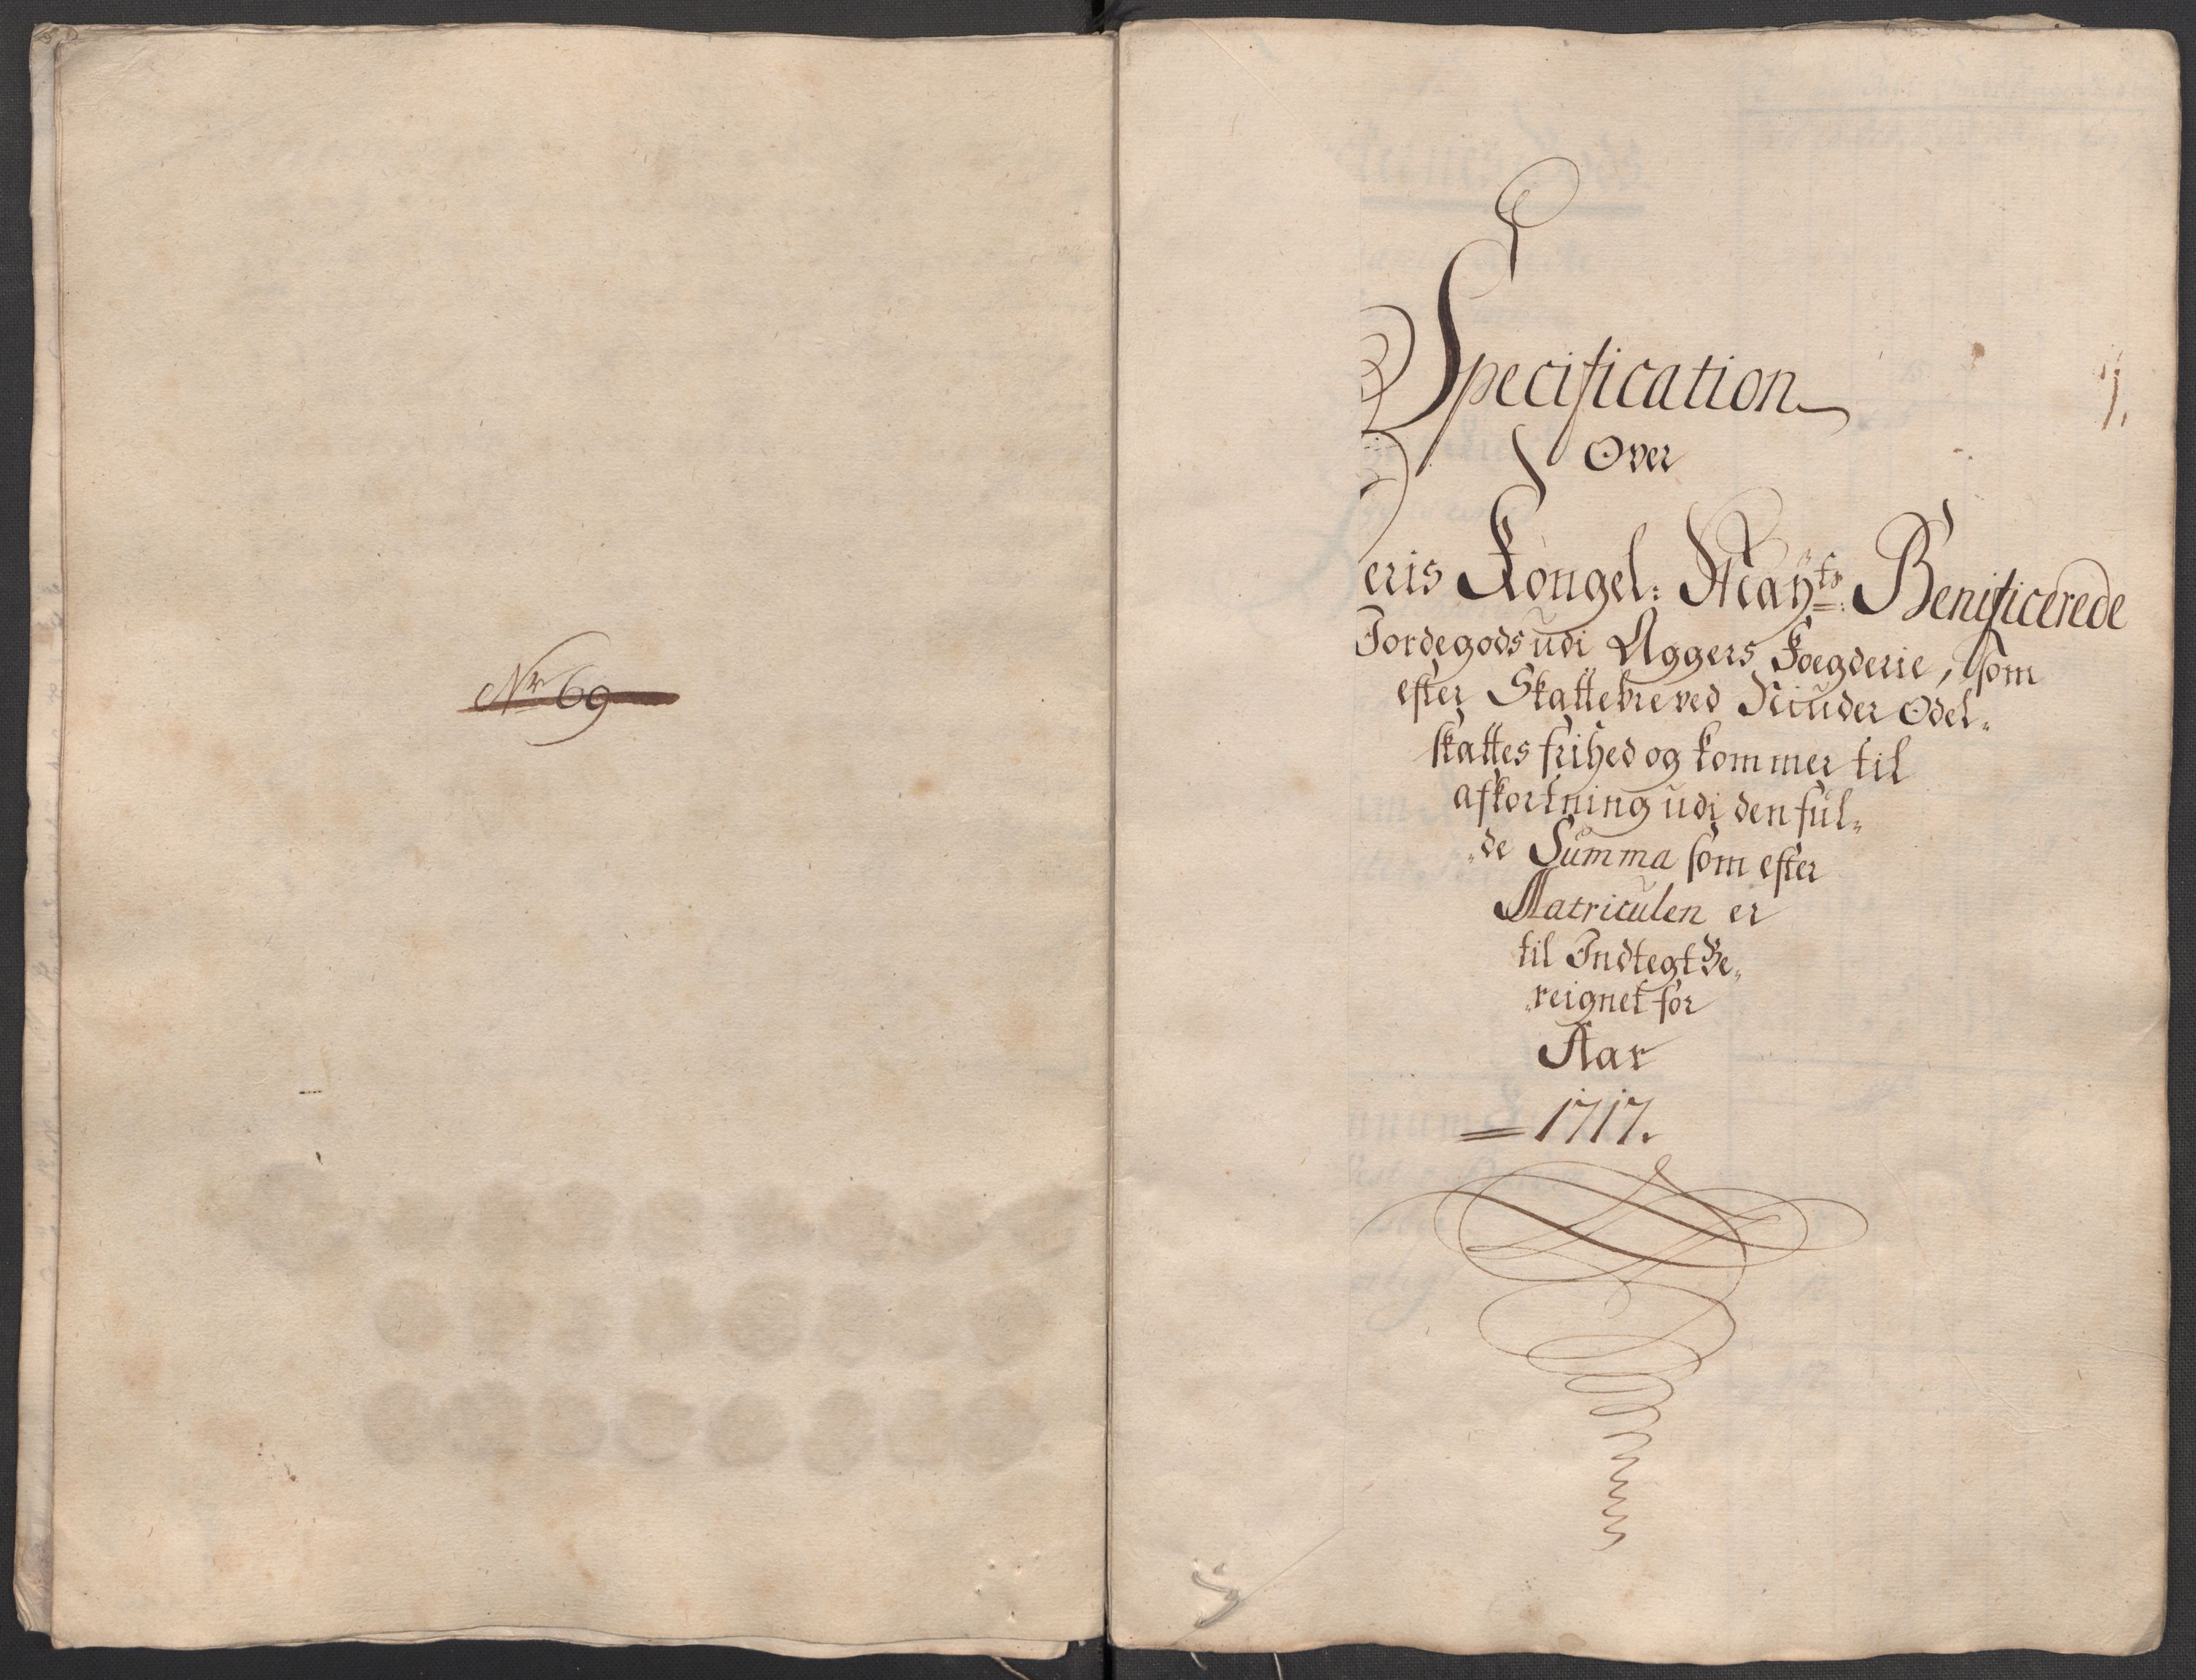 Nr 69
1.
Specification
Over
Deris Kongel: Mayts: Benificerede
Jordegods udi Aggers Foegderie, som
efter Skattebreved Niuder Odel-
skattes frihed og kommer til
afkortning udi den ful-
de Summa som efter
Matriculen er
til Indtegt Be-
reignet for
Aar
1717.